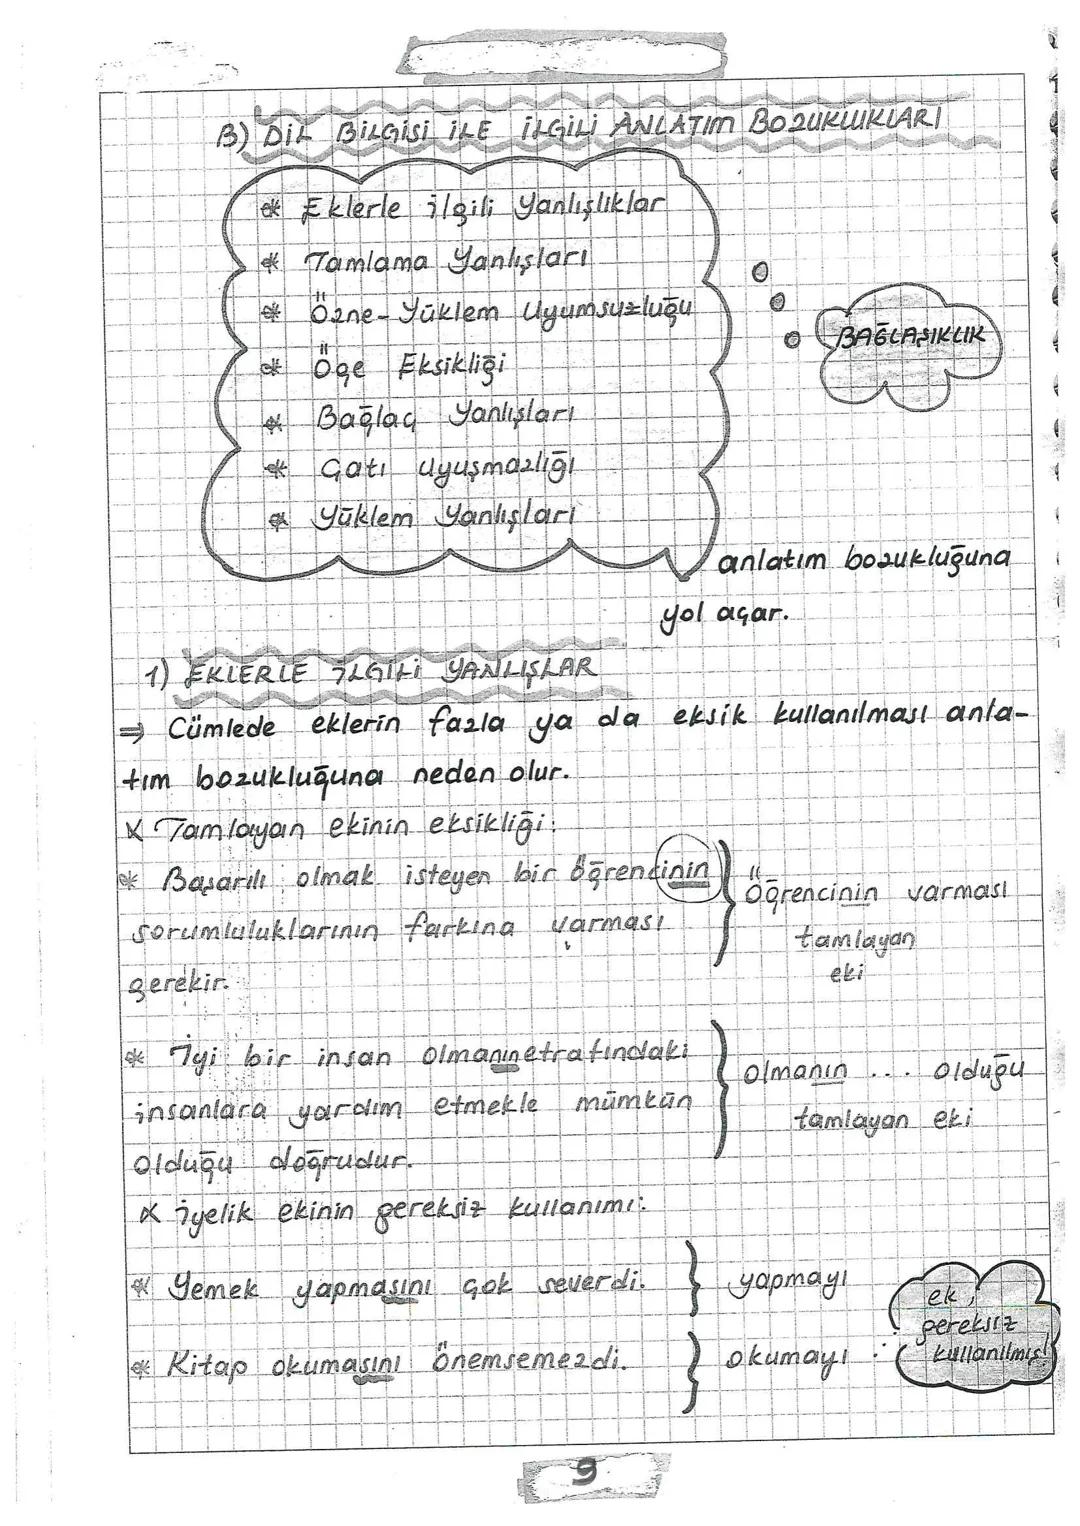 B) DİL BİLGİSİ İLE İLGİLİ ANLATIM BOZUKLUKLARI
* Eklerle ilgili Yanlışlıklar
* Tamlama Yanlışları
* Özne-Yüklem Uyumsuzluğu
* Öge Eksikliği
* Bağlaç Yanlışları
* Çatı Uyuşmazlığı
* Yüklem Yanlışları
BAĞLAŞIKLIK
anlatım bozukluğuna
yol açar.
1) EKLERLE İLGİLİ YANLIŞLAR
⇒ Cümlede eklerin fazla ya da eksik kullanılması anla-
tım bozukluğuna neden olur.
X Tamlayan ekinin eksikliği:
* Başarılı olmak isteyen bir öğrencinin
sorumluluklarının farkına varması
gerekir.
Öğrencinin varması
tamlayan
eki
* İyi bir insan olmanın etrafındaki
insanlara yardım etmekle mümkün
olduğu doğrudur.
olmanın ... olduğu
tamlayan eki
X İyelik ekinin gereksiz kullanımı:
* Yemek yapmasını çok severdi.
yapmayı
* Kitap okumasını önemsemezdi.
okumayı
ek,
gereksiz
kullanılmış!
9